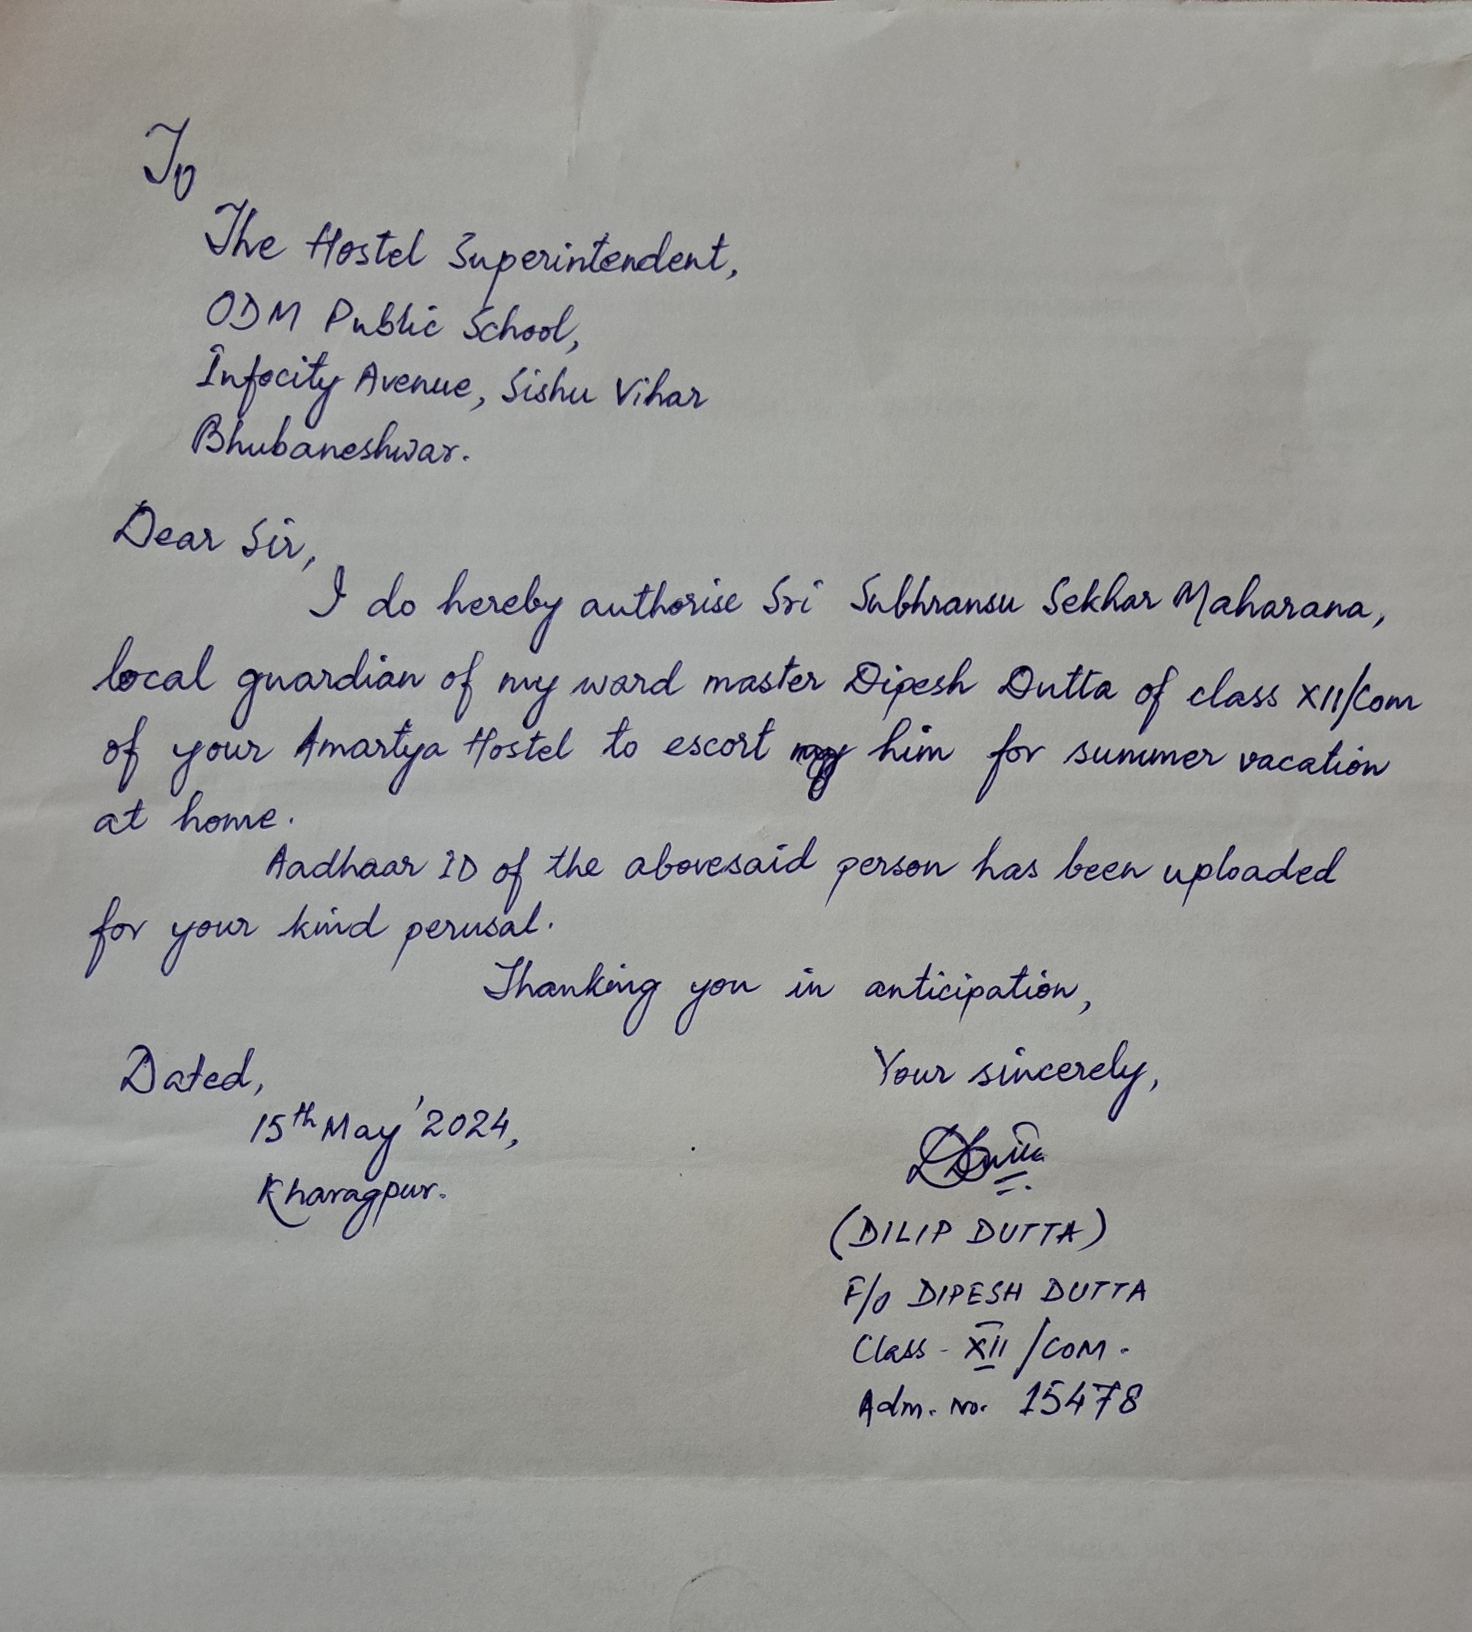 To
The Hostel Superintendent,
ODM Public School,
Infocity Avenue, Sishu Vihar
Bhubaneshwar.
Dear Sir,
I do hereby authorise Sri Subhransu Sekhar Maharana,
local guardian of my ward master Dipesh Dutta of class XII/Com
of your Amartya Hostel to escort him for summer vacation
at home.
Aadhaar ID of the abovesaid person has been uploaded
for your kind perusal.
Thanking you in anticipation,
Dated,
15th May' 2024,
Kharagpur.
Your sincerely,
(DILIP DUTTA)
F/o DIPESH DUTTA
Class - XII /COM.
Adm. No. 15478